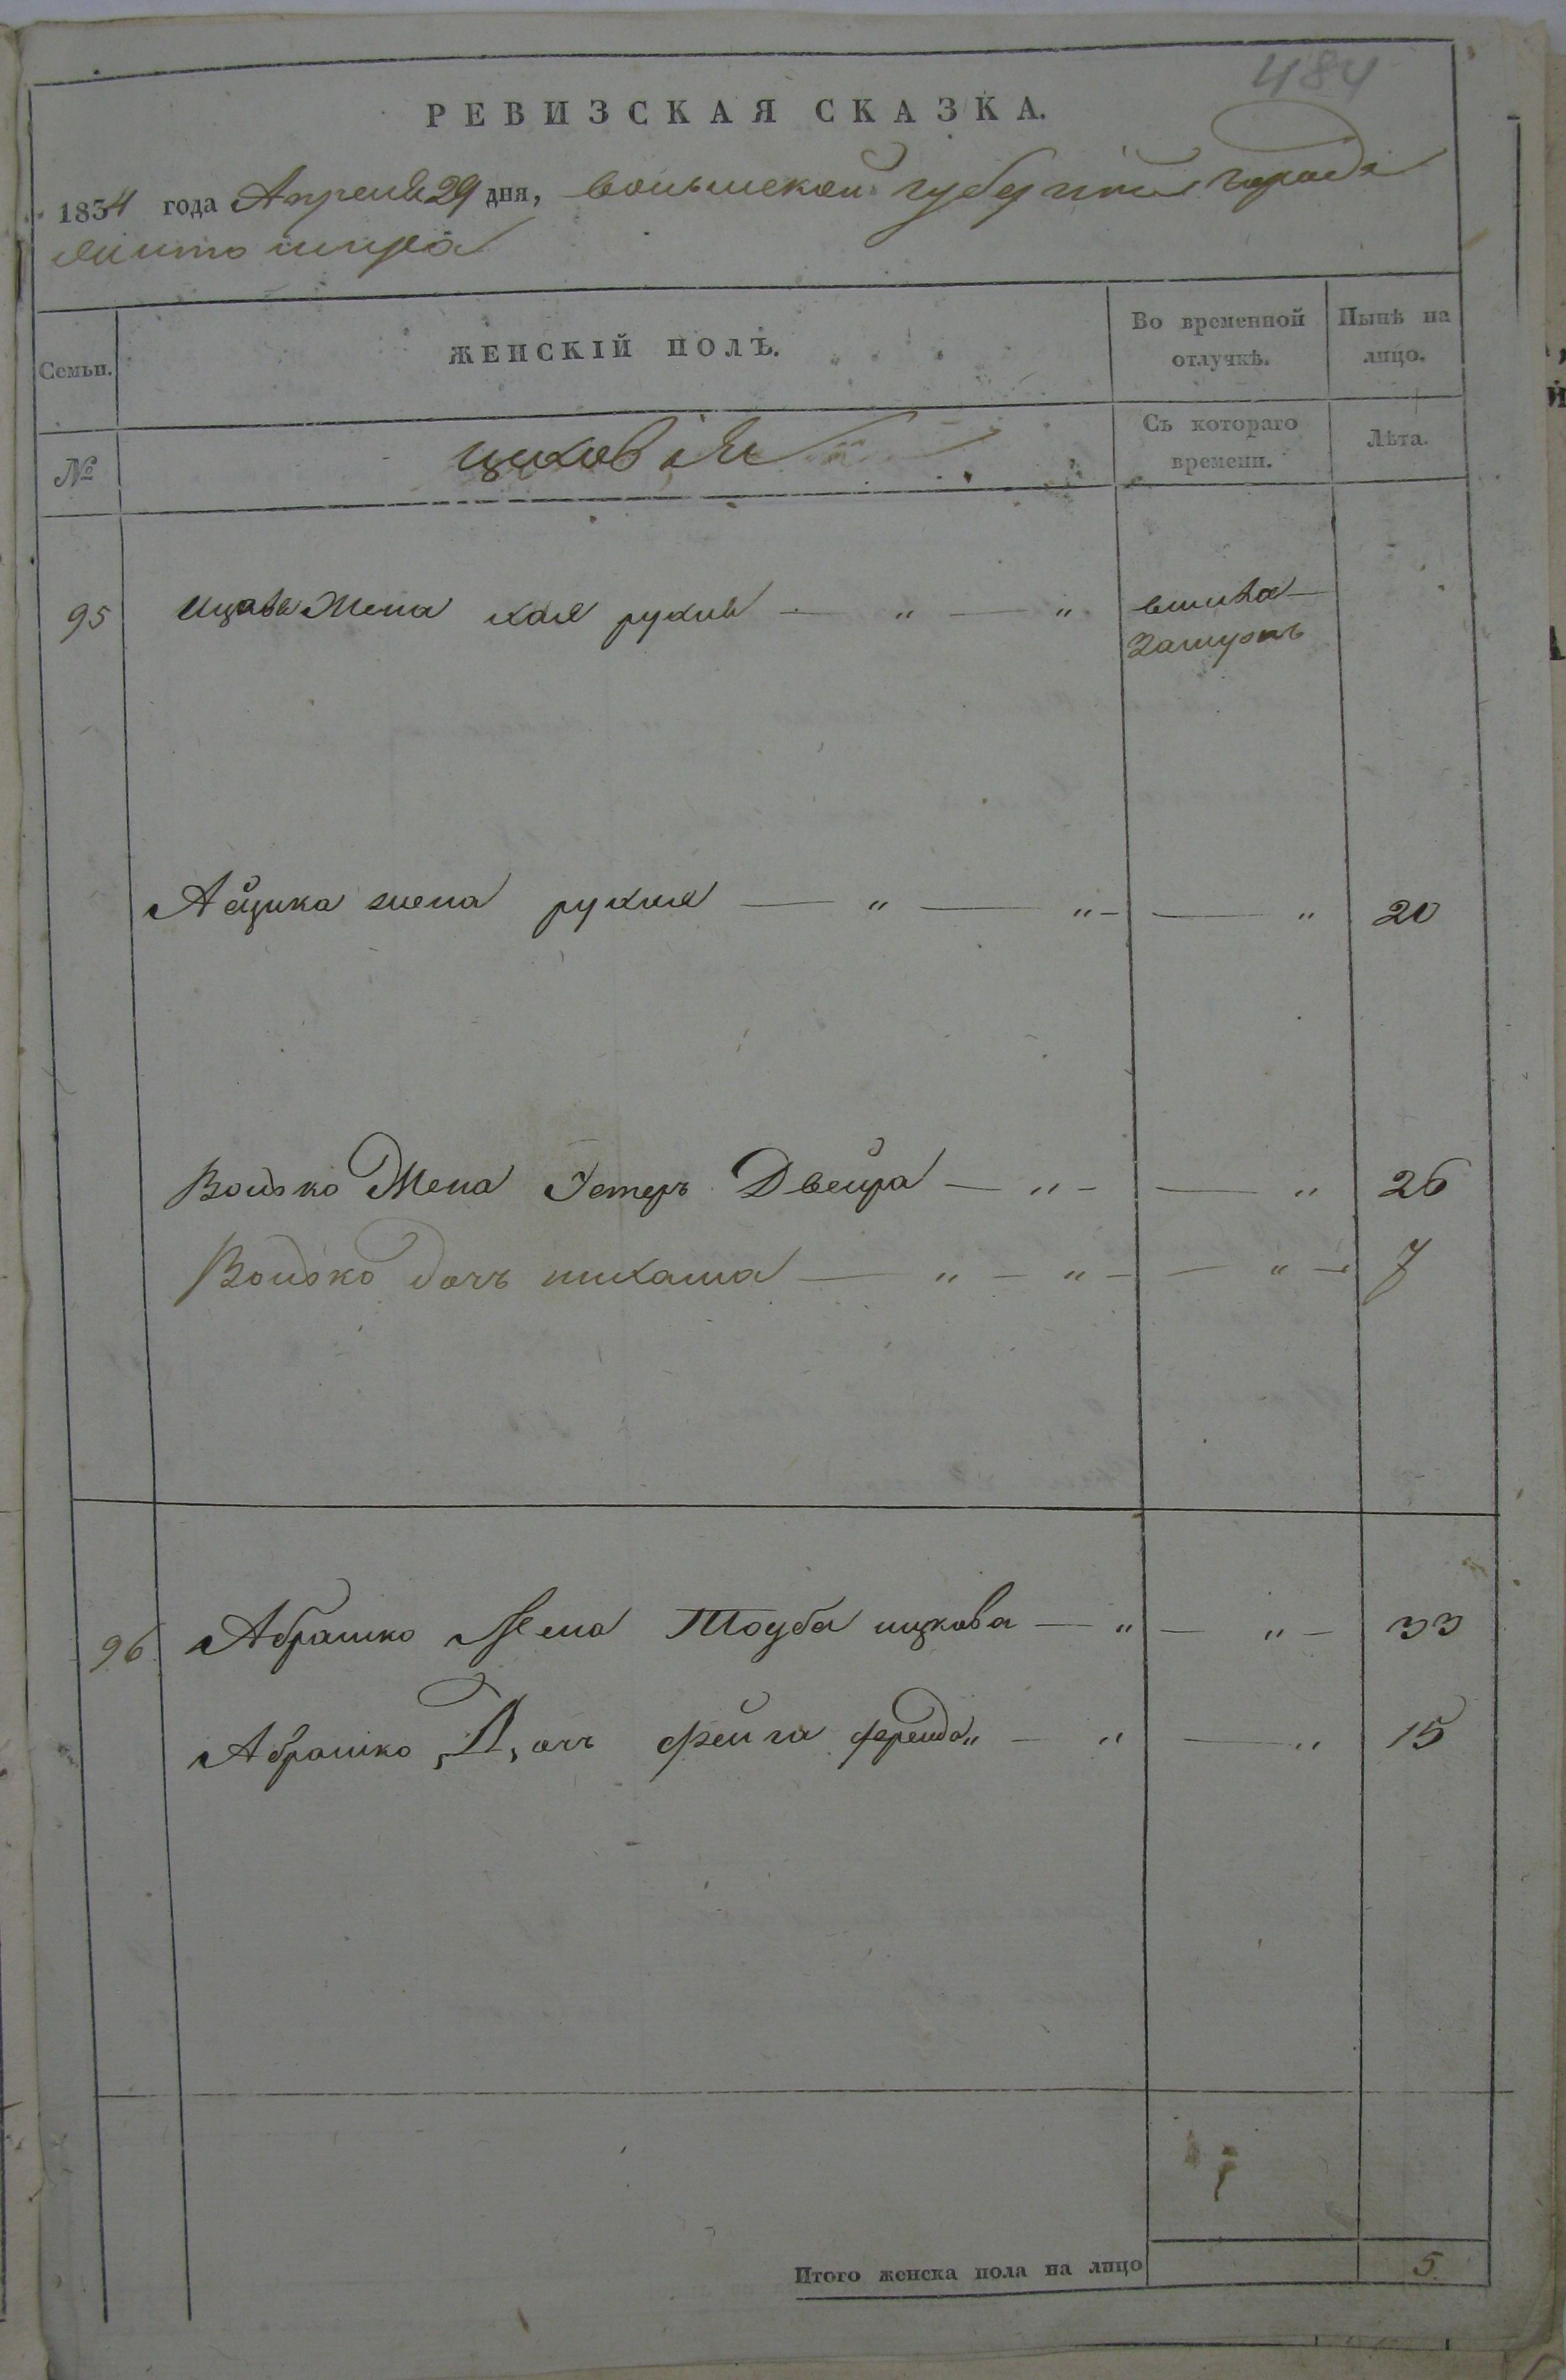 484
РЕВИЗСКАЯ СКАЗКА.
1834 года Апреля 29 дня, волынской губернии города
житомира
Семьи.
ЖЕНСКІЙ ПОЛЪ.
Во временной
отлучкѣ.
Нынѣ на
лицо.
№
Съ котораго
времени.
Лѣта.
95 Жена хая рухля — " — " вышла
замужъ
Айцика жена рухля — " — " — — " 20
Волько Жена Естеръ Двейра — " — — " 26
Волько дочъ — " — " — — " — 7
96 Абрашко Жена Тоуба ицкова — " — " — 33
Абрашко Дочъ фейга фрейда " — " — " 15
Итого женска пола на лицо 5